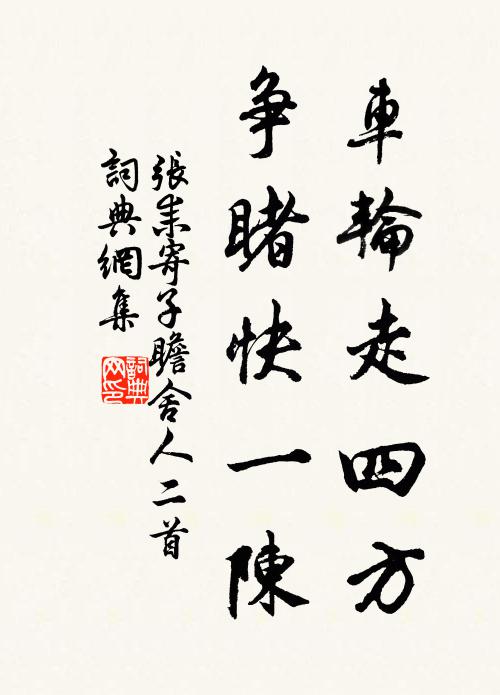 車輪走四方
争睹快一陳
張耒寄子瞻舍人二首
詞典網集
詞典
网印